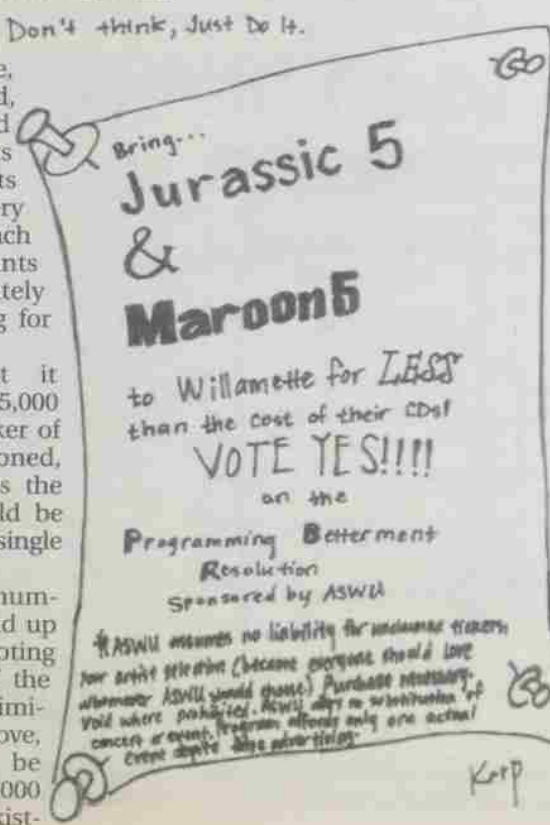 Don't think, Just Do It.
e,
d,
d
s
ts
ry
ach
nts
tely
g for
t it
5,000
ker of
oned,
s the
ld be
single
num-
d up
oting
the
imi-
ove,
be
000
xist-
Bring...
Jurassic 5
&
Maroon5
to Willamette for LESS
than the cost of their CDs!
VOTE YES!!!!
on the
Programming Betterment
Resolution
Sponsored by ASWU
*ASWU assumes no liability for
your artist selection (because everyone should love
whomever ASWU should choose) Purchase necessary.
Void where prohibited. ASWU substitution of
concert or event. Program affords only one actual
event despite advertising.
Karp